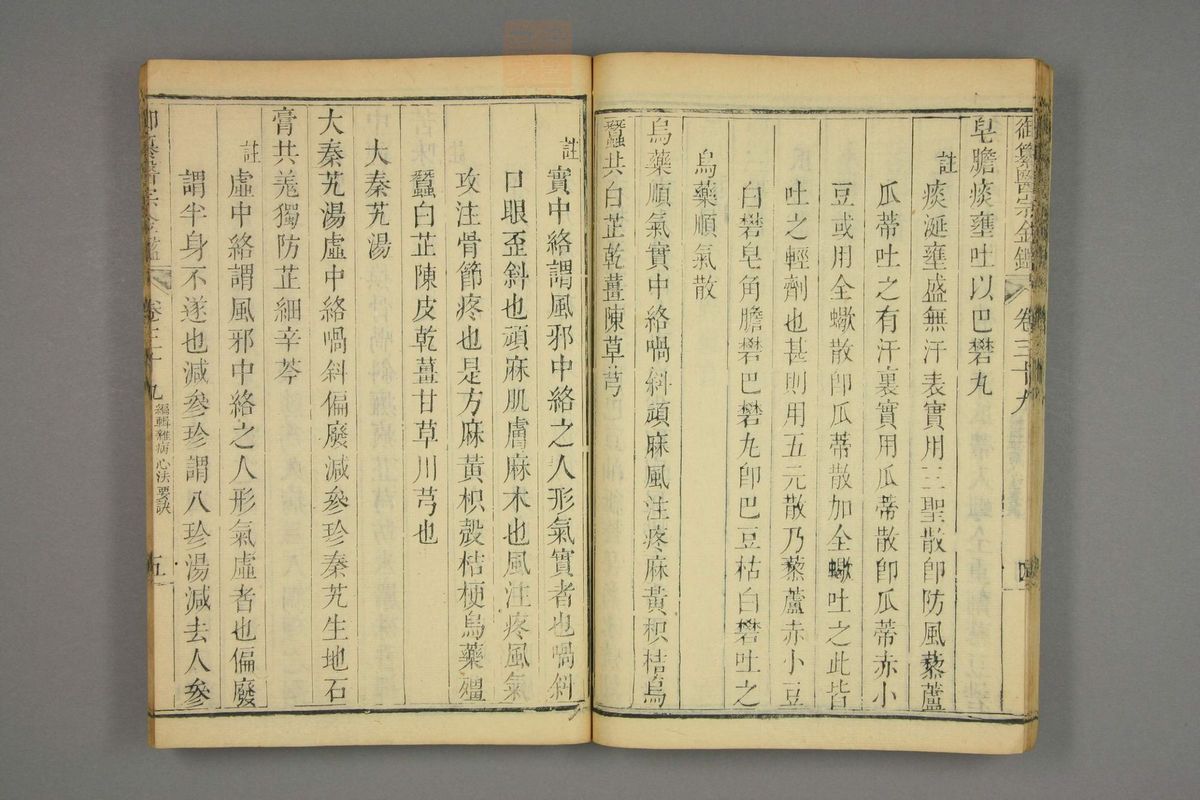 御纂醫宗金鑑 卷三十九 四
皂膽痰壅吐以巴礬丸
註 痰涎壅盛無汗表實用三聖散卽防風藜蘆
瓜蒂吐之有汗裏實用瓜蒂散卽瓜蒂赤小
豆或用全蠍散卽瓜蒂散加全蠍吐之此皆
吐之輕劑也甚則用五元散乃藜蘆赤小豆
白礬皂角膽礬巴礬丸卽巴豆枯白礬吐之
烏藥順氣散
烏藥順氣實中絡喎斜頑麻風注疼麻黃枳桔烏
蠶共白芷乾薑陳草芎
註 實中絡謂風邪中絡之人形氣實者也喎斜
口眼歪斜也頑麻肌膚麻木也風注疼風氣
攻注骨節疼也是方麻黃枳殼桔梗烏藥殭
蠶白芷陳皮乾薑甘草川芎也
大秦艽湯
大秦艽湯虛中絡喎斜偏廢減參珍秦艽生地石
膏共羗獨防芷細辛芩
註 虛中絡謂風邪中絡之人形氣虛者也偏廢
謂半身不遂也減參珍謂八珍湯減去人參
御纂醫宗金鑑 卷三十九 編輯雜病心法要訣 五